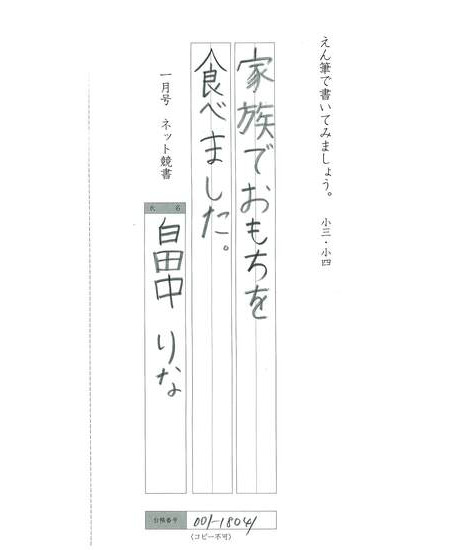 えん筆で書いてみましょう。　小三・小四
家族でおもちを
食べました。
一月号　ネット競書
氏　名
自田中　りな
台帳番号　001-18041
(コピー不可)